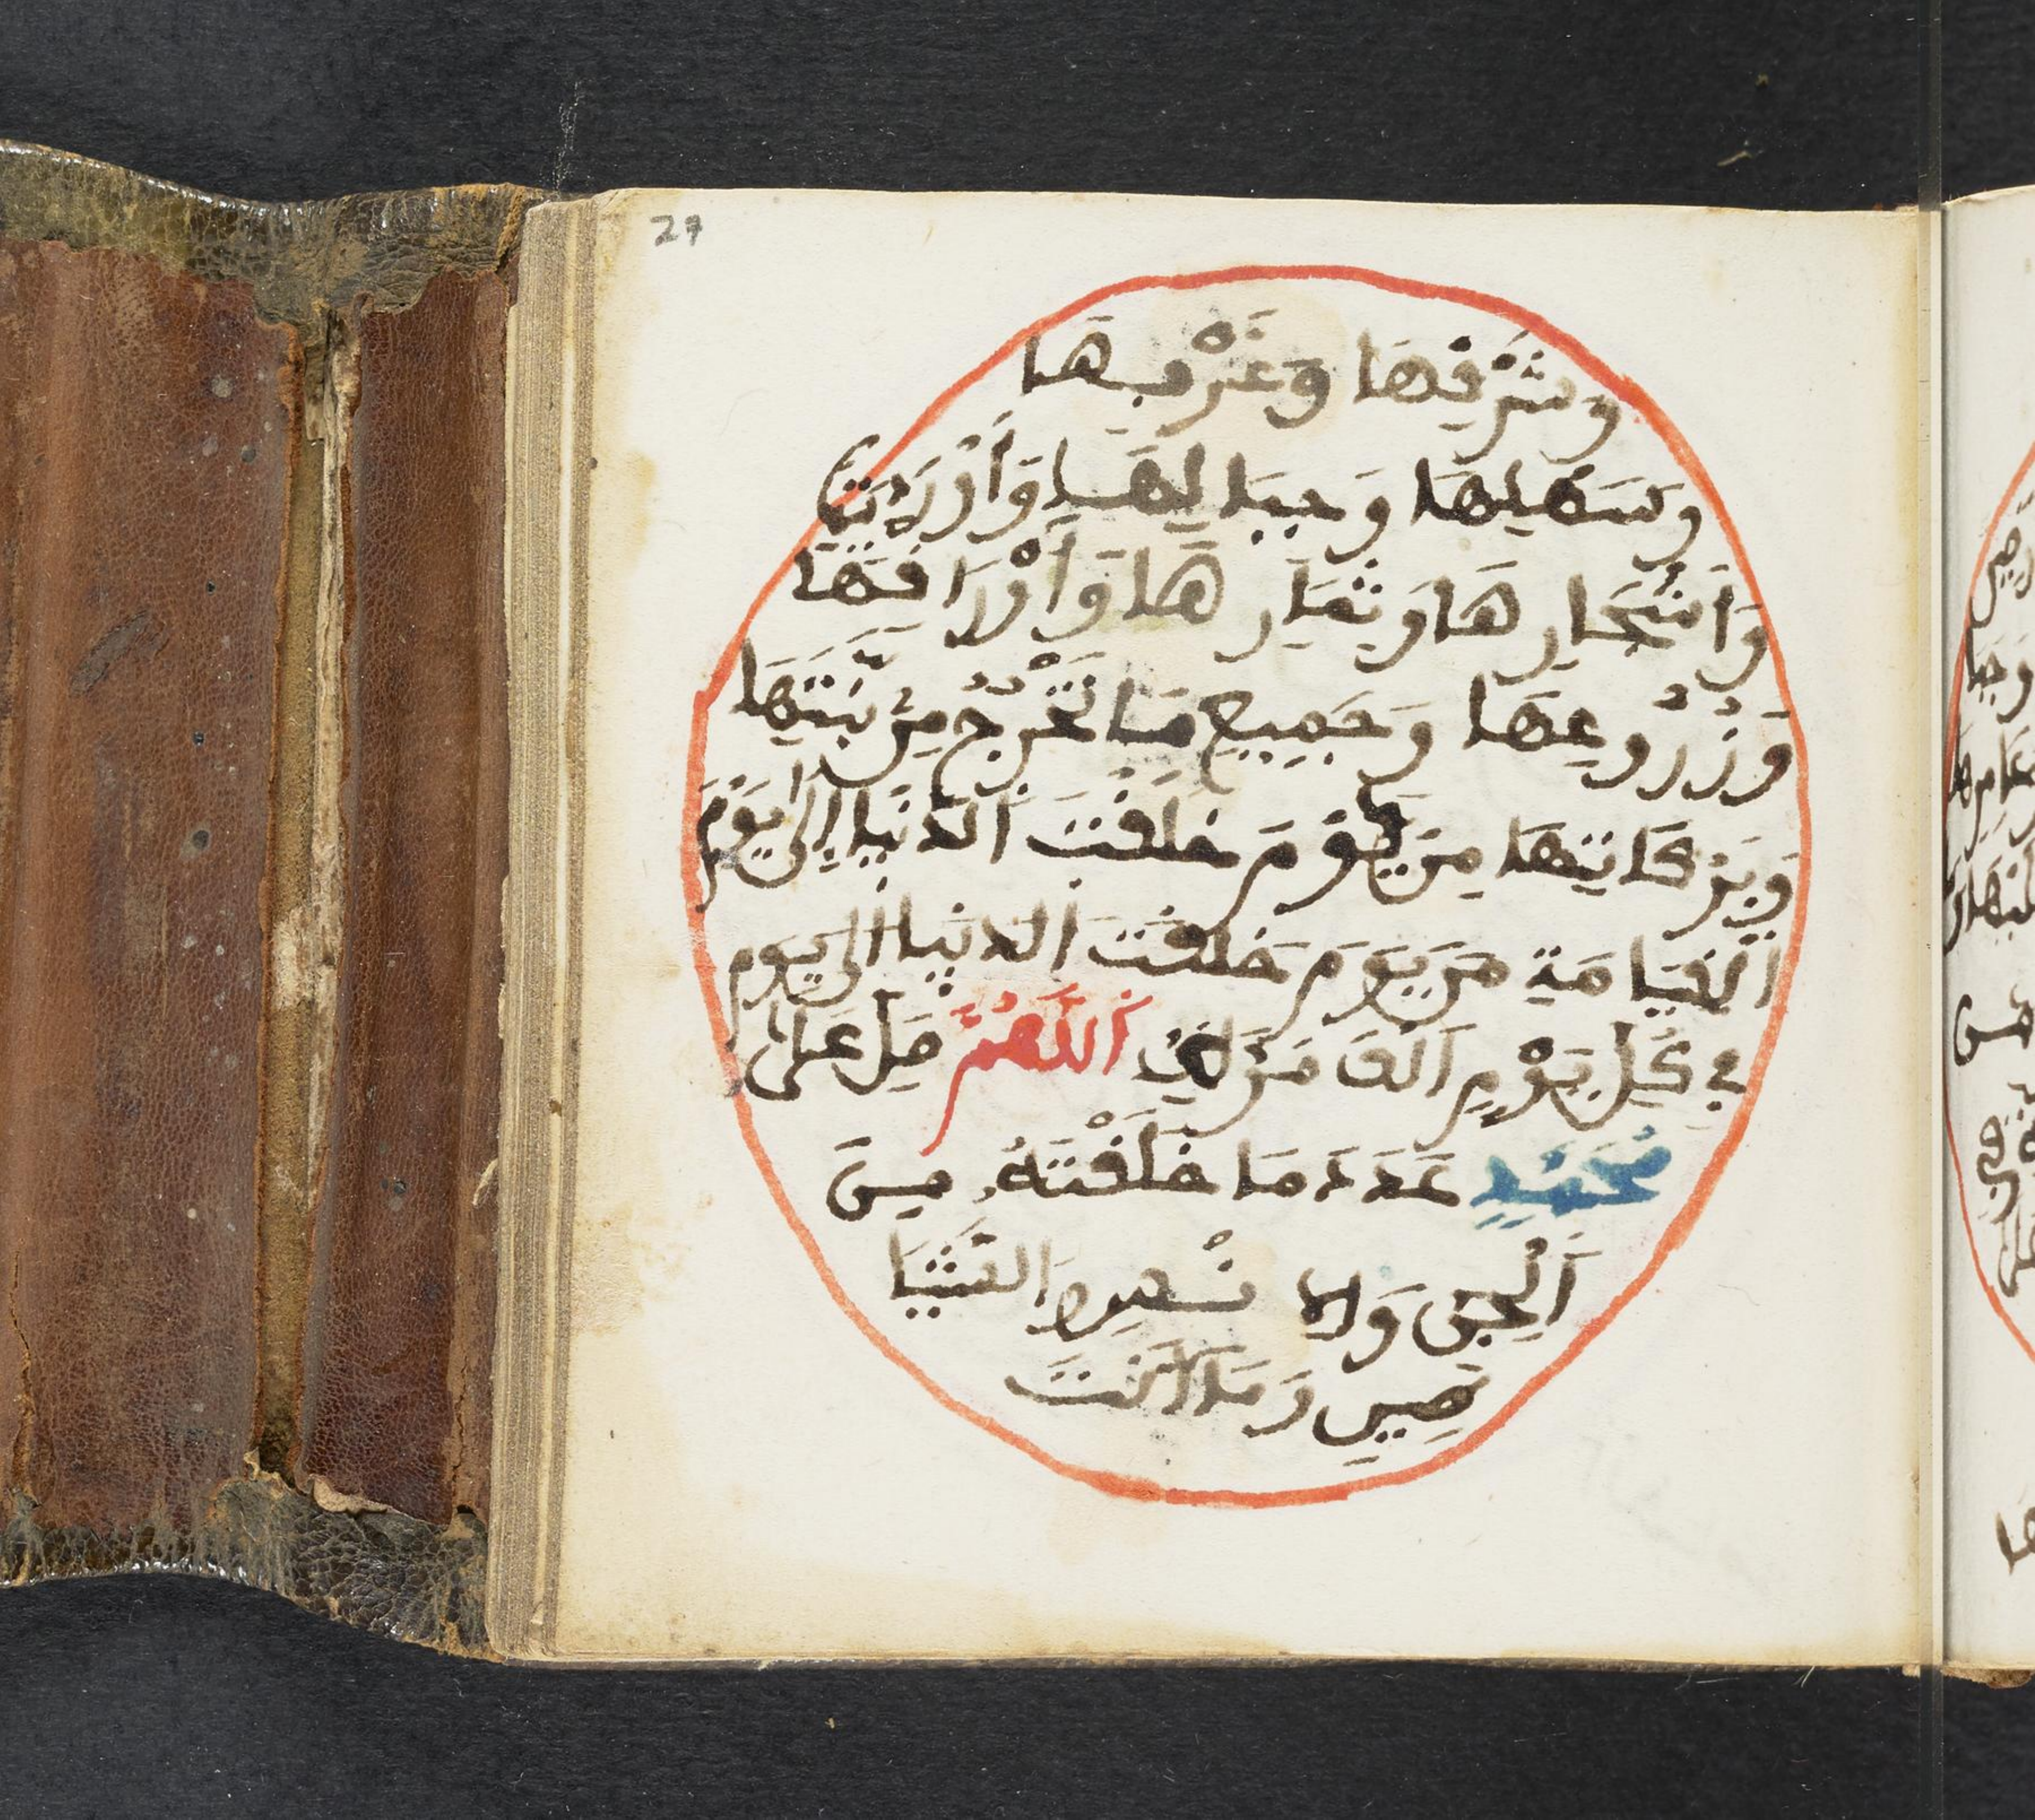 27
وَشَرْقِهَا وَغَرْبِهَا
وَسَهْلِهَا وَجِبَالِهَا وَأَوْدِيَتِهَا
وَأَشْجَارِهَا وَثِمَارِهَا وَأَوْرَاقِهَا
وَزُرُوعِهَا وَجَمِيعِ مَا يَخْرُجُ مِنْ نَبَتِهَا
وَبَرَكَاتِهَا مِنْ يَوْمَ خَلَقْتَ الدُّنْيَا إِلَى يَوْمِ
الْقِيَامَةِ مِنْ يَوْمَ خَلَقْتَ الدنْيَا إلى يوم
في كُلِّ يَوْمٍ أَلْفَ مَرَّةٍ اَللَّهُمَّ صَلِّ عَلَى
مُحَمَّدٍ عَدَدَ مَا خَلَقْتَهُ مِنَ
اَلْجِنِّ وَالإِنْسِ وَالشَّيَا
طِينِ وَمَا أَنْتَ